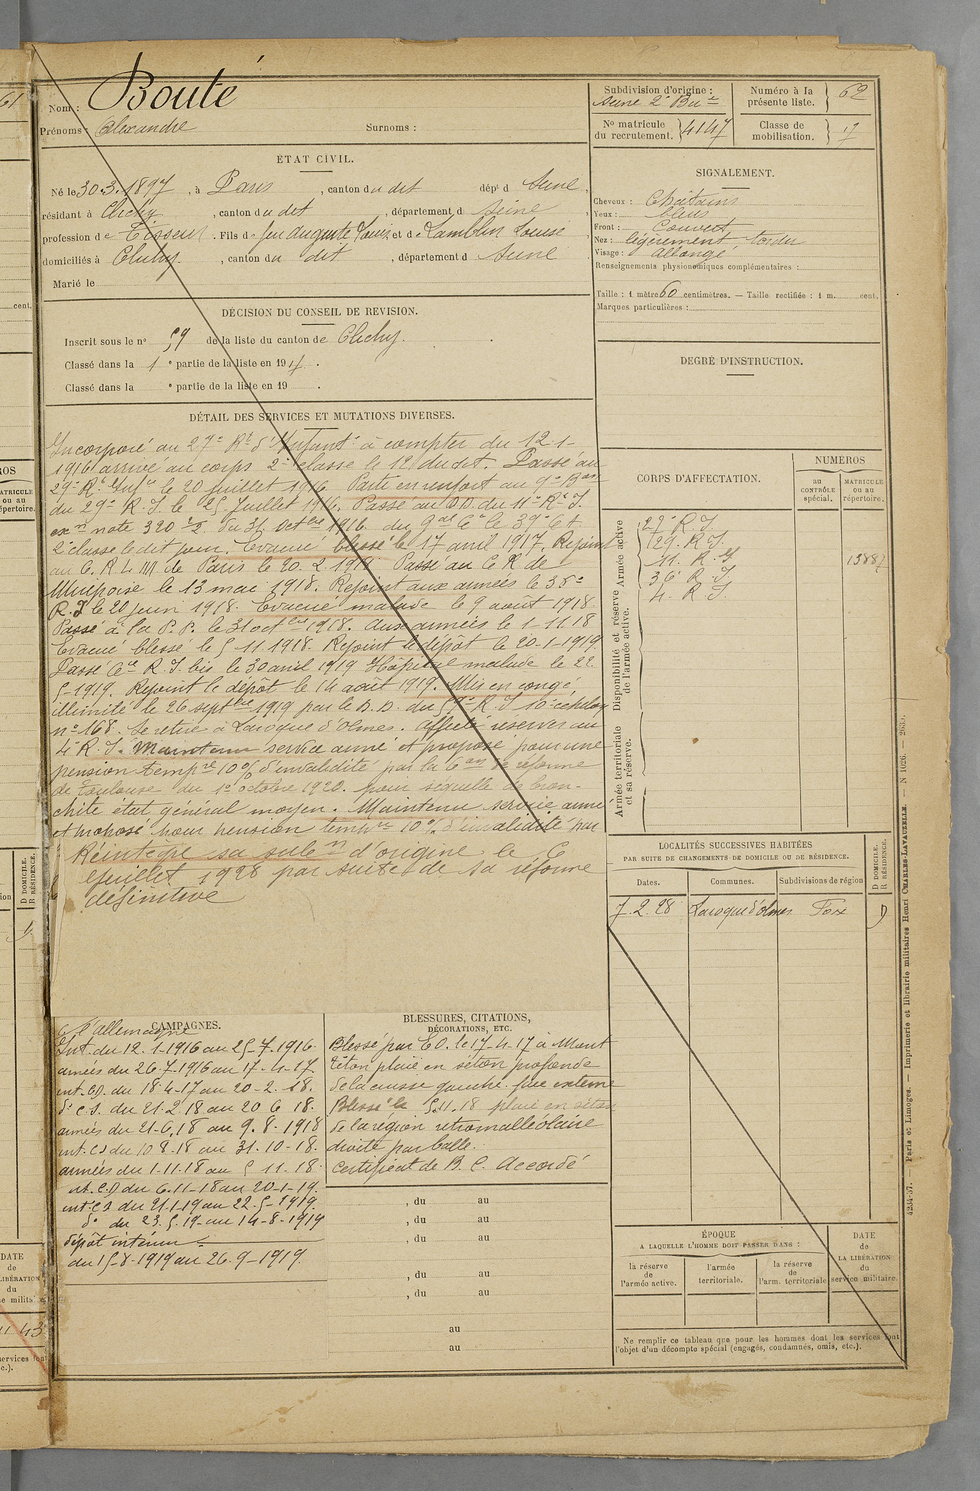 Nom : Bouté
Prénoms : Alexandre Surnoms :
Subdivision d'origine :
Seine 2e Bau
Numéro à la
présente liste. 62
No matricule
du recrutement. 4147
Classe de
mobilisation. 17
ÉTAT CIVIL.
Né le 30.3.1897, à Paris, canton du dit dépt d Seine,
résidant à Clichy, canton du dit, département d Seine
profession de Tisseur. Fils de feu Auguste Louis et de Lamblin Louise
domiciliés à Clichy, canton du dit, département d Seine
Marié le
DÉCISION DU CONSEIL DE REVISION.
Inscrit sous le no 59 de la liste du canton de Clichy.
Classé dans la 1e partie de la liste en 1917.
Classé dans la e partie de la liste en 19 .
SIGNALEMENT.
Cheveux : Châtains
Yeux : bleus
Front : Couvert
Nez : légèrement tordu
Visage : allongé
Renseignements physionomiques complémentaires :
Taille : 1 mètre 60 centimètres. — Taille rectifiée : 1 m. cent.
Marques particulières :
DEGRÉ D'INSTRUCTION.
DÉTAIL DES SERVICES ET MUTATIONS DIVERSES.
Incorporé au 27e Rt d'Infantie à compter du 12-1-
1916 arrivé au corps 2e classe le 12 du dit. Passé au
29e Rt Infie le 20 juillet 1916. Parti en renfort au 9e Bon
du 29e R.I. le 25 juillet 1916. Passé au DD du 11e Rt I.
note 320 du 31 Octbre 1916 du 9e Cie le 39e et
2e classe le dit jour. Evacué blessé le 17 avril 1917. Rejoint
au C.R.L.M de Paris le 20.2.1918. Passé au C R de
Mirepoix le 13 mai 1918. Rejoint aux armées le 36e
R.I le 20 juin 1918. Evacué malade le 9 août 1918.
Passé à la P.P. le 31 octbre 1918. Aux armées le 1-11-18
Evacué blessé le 5-11-1918. Rejoint le dépôt le 20-1-1919.
Passé R.I. bis le 30 avril 1919 Hôpital malade le 22-
5-1919. Rejoint le dépôt le 14 août 1919. Mis en congé
illimité le 26 septbre 1919 par le D.D. du 57e R.I 10e échelon
no 168. Se retire à Laroque d'Olmes. Affecté réserve au
4e R.I. Maintenu service armé et proposé pour une
pension tempre 10% d'invalidité par la Con de réforme
de Toulouse du 1er octobre 1920. pour séquelle de bron-
chite état général moyen. Maintenu service armé
et proposé pour pension tempre 10% d'invalidité par
Réintégré sa subon d'origine le 6
juillet 1928 par suite de sa réforme
définitive
CORPS D'AFFECTATION.
NUMÉROS
au
CONTRÔLE
spécial.
MATRICULE
ou au
répertoire.
Armée active
27e R.I.
29. R.I.
11. R.I 13887
36e R.I
4. R.I.
Disponibilité et réserve
de l'armée active.
Armée territoriale
et sa réserve.
LOCALITÉS SUCCESSIVES HABITÉES
PAR SUITE DE CHANGEMENTS DE DOMICILE OU DE RÉSIDENCE.
Dates. Communes. Subdivisions de région D DOMICILE. R RÉSIDENCE.
7.2.28 Laroque d'olmes Foix D
CAMPAGNES.
C l'allemagne
Int. du 12-1-1916 au 25-7-1916.
armées du 26-7-1916 au 17-4-17.
int. CD. du 18-4-17 au 20-2-18.
do C.S. du 21-2-18 au 20-6-18.
armées du 21-6.18 au 9.8-1918
int. CS du 10-8-18 au 31-10-18.
armées du 1-11-18 au 5-11-18.
int. C.D du 6-11-18 au 20-1-19.
int C S du 21-1-19 au 22-5-1919.
do du 23-5-19 au 14-8-1919
dépôt intérieur
du 15-8-1919 au 26-9-1919.
BLESSURES, CITATIONS,
DÉCORATIONS, ETC.
Blessé par EO. le 17-4-17 à Mont
têton plaie en séton profonde
de la cuisse gauche. face externe
Blessé le 5.11.18 plaie en séton
de la région rétromalléolaire
droite par balle.
Certificat de B. C. Accordé
, du au
, du au
, du au
, du au
, du au
au
au
ÉPOQUE
A LAQUELLE L'HOMME DOIT PASSER DANS :
la réserve
de
l'armée active.
l'armée
territoriale.
la réserve
de
l'arm. territoriale
DATE
de
LA LIBÉRATION
du
service militaire.
Ne remplir ce tableau que pour les hommes dont les services font
l'objet d'un décompte spécial (engagés, condamnés, omis, etc.).
4234-37. Paris et Limoges. — Imprimerie et librairie militaires Henri CHARLES-LAVAUZELLE. — N 1026.
61
cent.
MATRICULE
ou au
répertoire.
D DOMICILE.
R RÉSIDENCE.
DATE
de
LA LIBÉRATION
du